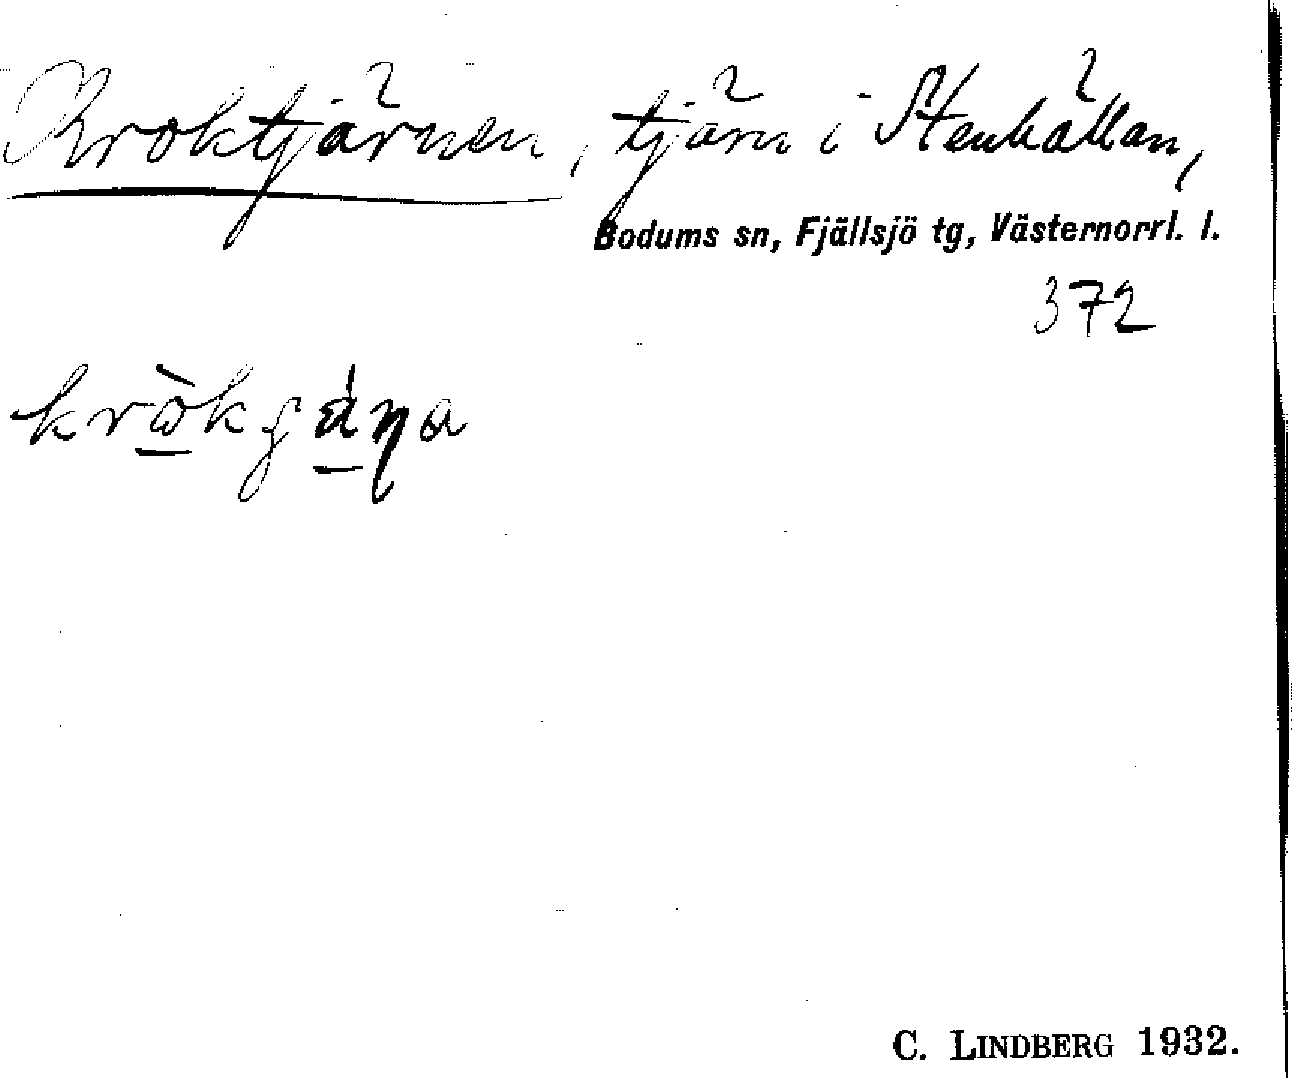 Kroktjärnen, tjärn i Stenhällan,
Bodums sn, Fjällsjö tg, Västernorrl. l.
372
C. LINDBERG 1932.